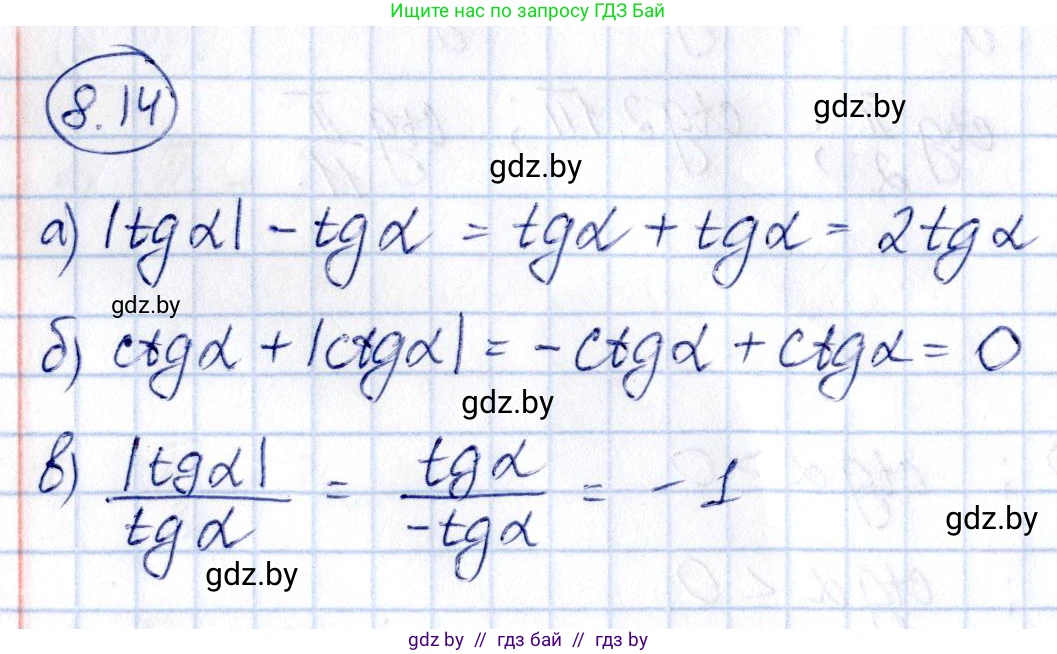 Ищите нас по запросу ГДЗ Бай
8.14
gdz.by
gdz.by
а) |tgα| - tgα = tgα + tgα = 2tgα
gdz.by
б) ctgα + |ctgα| = -ctgα + ctgα = 0
gdz.by
в) |tgα| / tgα = tgα / -tgα = -1
gdz.by
gdz.by
gdz by // гдз бай // гдз by